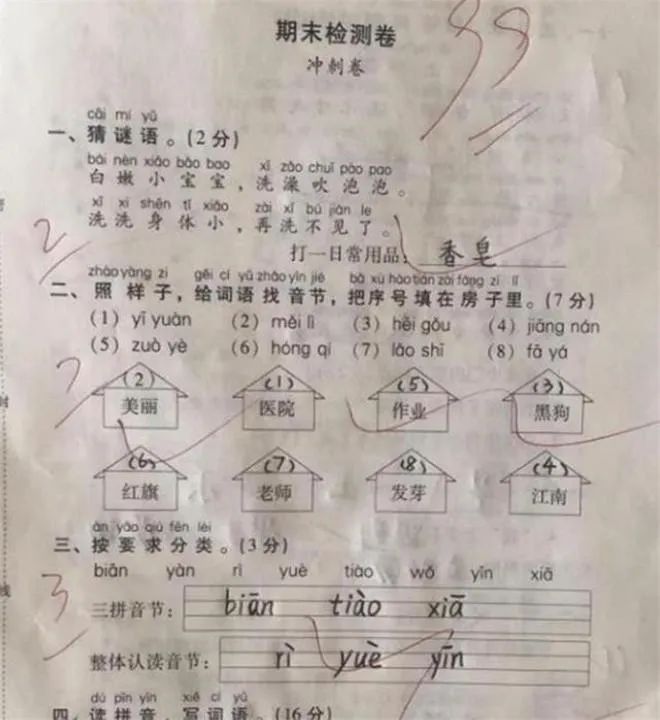 期末检测卷
99
冲刺卷
cāi mí yǔ
一、猜谜语。(2分)
bái nèn xiǎo bǎo bao xǐ zǎo chuī pào pao
白嫩小宝宝,洗澡吹泡泡。
xǐ xǐ shēn tǐ xiǎo zài xǐ bú jiàn le
洗洗身体小,再洗不见了。
2
打一日常用品: 香皂
zhào yàng zi gěi cí yǔ zhǎo yīn jié bǎ xù hào tián zài fáng zi lǐ
二、照样子,给词语找音节,把序号填在房子里。(7分)
(1) yī yuàn (2) měi lì (3) hēi gǒu (4) jiāng nán
(5) zuò yè (6) hóng qí (7) lǎo shī (8) fā yá
7
(2) (1) (5) (3)
美丽 医院 作业 黑狗
(6) (7) (8) (4)
红旗 老师 发芽 江南
àn yāo qiú fēn lèi
三、按要求分类。(3分)
biān yàn rì yuè tiào wǒ yīn xiā
3
三拼音节: biān tiào xiā
整体认读音节: rì yuè yīn
dú pīn yīn xiě cí yǔ
四、读拼音,写词语。(16分)